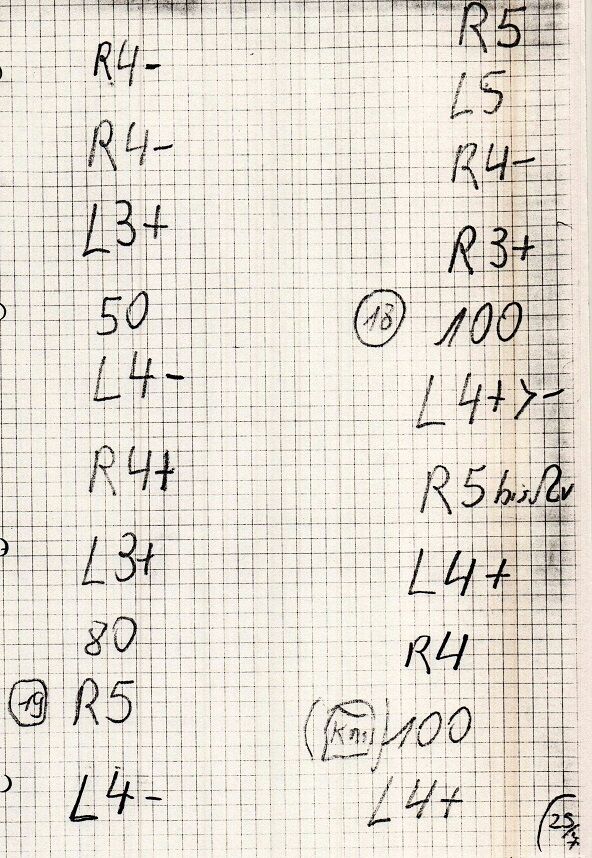 R4-
R4-
L3+
50
L4-
R4+
L3+
80
19 R5
L4-
R5
L5
R4-
R3+
18 100
L4+>-
R5 bis
L4+
R4
(Km) 100
L4+
25/7